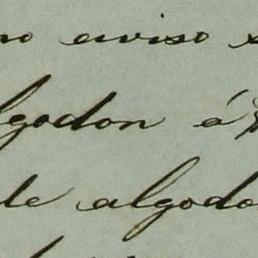 no aviso s
lgodon á
de algodo